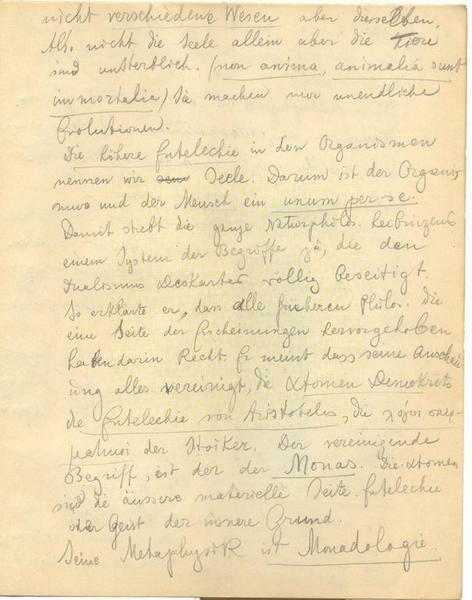 nicht verschiedene Wesen aber dieselben.
Also nicht die Seele allein aber die Tiere
sind unsterblich. (non anima, animalia sunt
immortalia) Sie machen nur unendliche
Evolutionen.
Die höhere Entelechie in den Organismen
nennen wir Seele. Darum ist der Organis
mus und der Mensch ein unum per se.
Damit strebt die ganze Naturphilos. Leibnizens
einem System der Begriffe zu, die den
Dualismus Deskartes völlig beseitigt.
So erklärte er, dass alle früheren Philos. die
eine Seite der Erscheinungen hervorgehoben
haben darin Recht. Er meint dass seine Anschau
ung alles vereinigt, die Atomen Demokrits
die Entelechie von Aristoteles, die λόγοι σπερ-
ματικοι der Stoiker. Der vereinigende
Begriff, ist der der Monas. Die Atomen
sind die äussere materielle Seite. Entelechie
oder Geist der innere Grund.
Seine Metaphysik ist Monadologie.